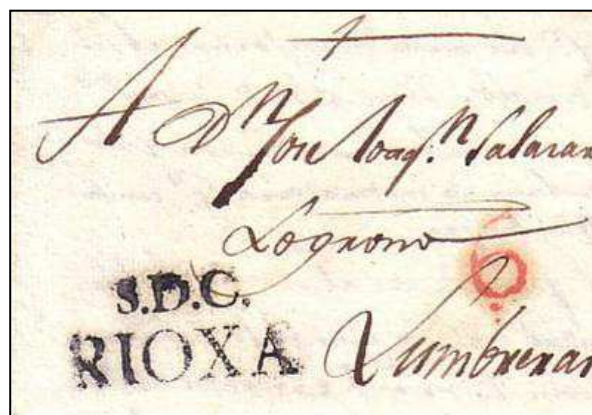 A Dn Jose Joaqn. Salazar
Logrono
6
S.D.C.
RIOXA
Lumbreras